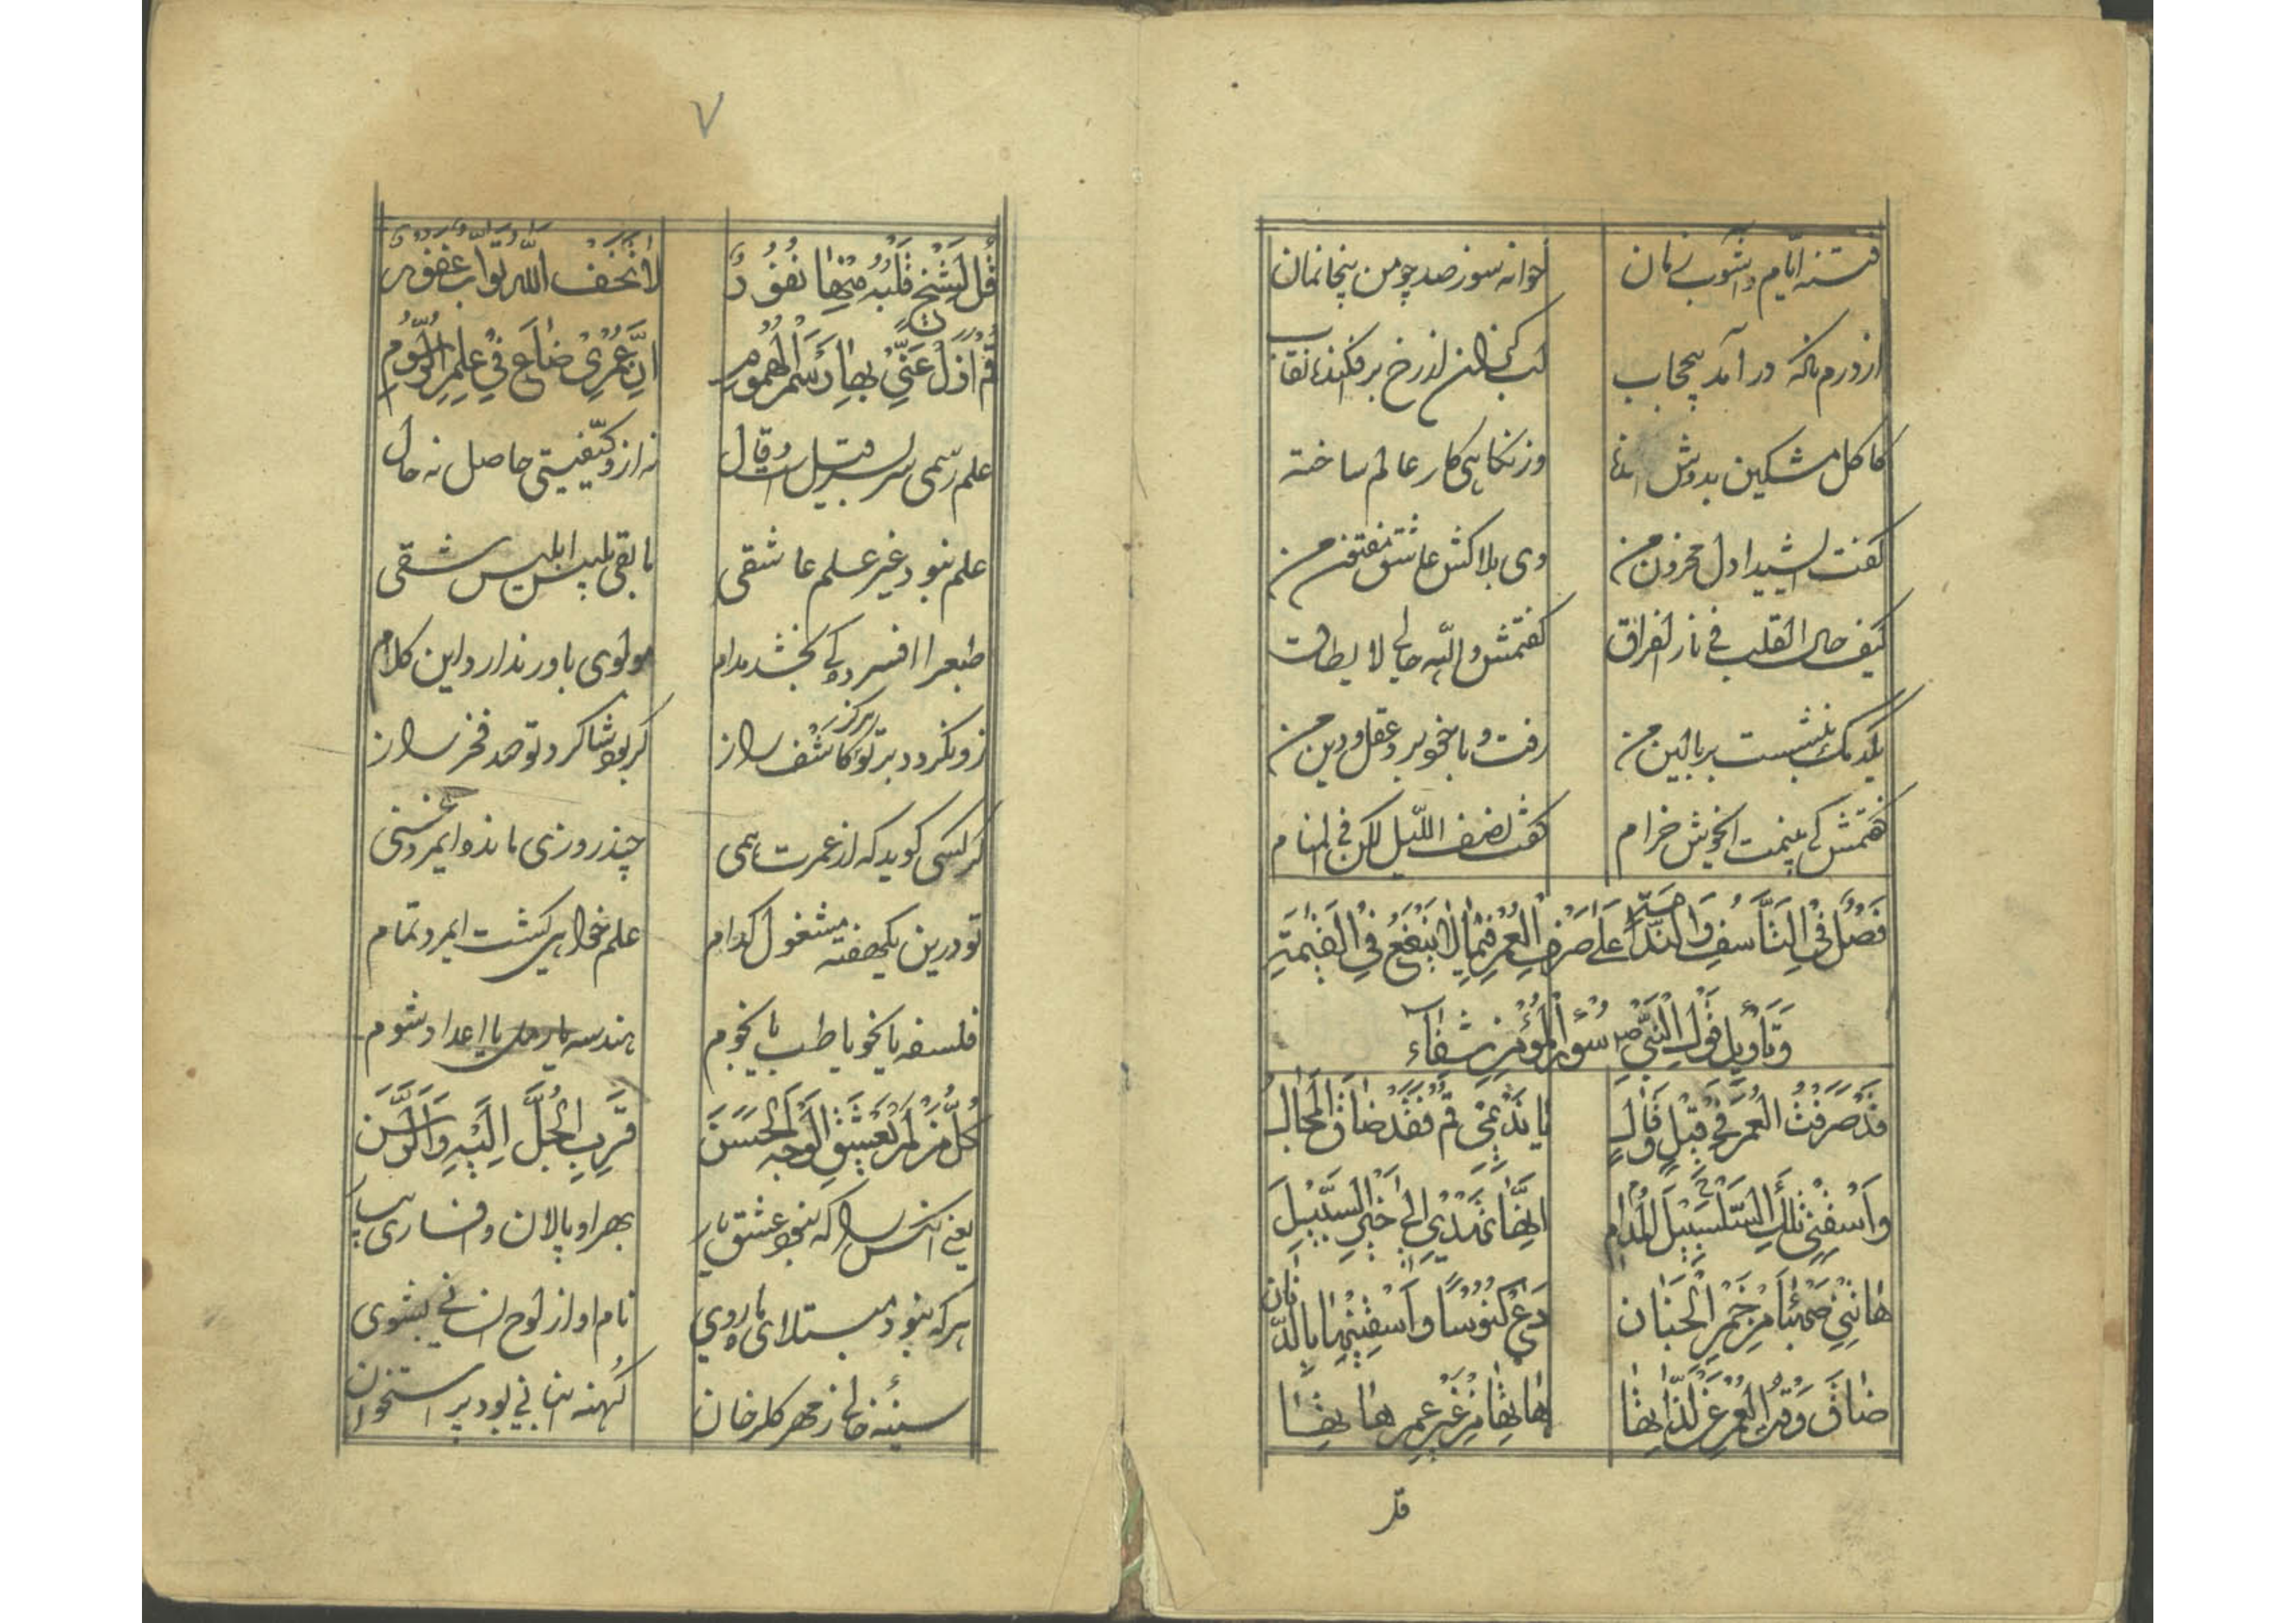 فتنه ایّام و آشوب زمان خوانه سوز صد چو من بیخانمان
از درم ناکه در آمد بیحجاب لب کزان از رخ برفکنده نقاب
کاکل مشکین بدوش انداخته وز نکاهی کار عالم ساخته
کفت ای شیدا دل محزون من وی بلاکش عاشق مفتون من
کیف حال القلب فی نار الفراق کفتمش والله حالی لا یطاق
یکدمک بنشست بر بالین من رفت و با خود برد عقل و دین من
کفتمش کی بینمت ای خوش خرام کفت نصف اللّیل لکن فی المنام
فَصْلٌ فِی التَّأَسُّفِ وَالنَّدامَةِ عَلی صَرْفِ الْعُمْرِ فیما لا یَنْفَعُ فِی الْقِیٰمَةِ
وَتَأویلِ قَوْلِ النَّبیِّ ص سُؤرُ الْمُؤمِنِ شِفآء
قَدْ صَرَفْتُ الْعُمْرَ فی قیٖلٍ وَّقالْ یا نَدیٖمی قُمْ فَقَدْ ضاقَ الْمَجالْ
وَاسْقِنی تِلْكَ الْمُدامَ السَّلْسَبیٖلَ اِنَّها تَهْدیٖ اِلیٰ خَیْرِ السَّبیٖلَ
هاتِنیٖ صَهْبآءَ مِنْ خَمْرِ الْجِنانْ دَعْ کُئُوسًا وَاسْقِنیٖها بِالدِّنانْ
ضاقَ وَقْتُ الْعُمْرِ عَنْ اٰلاتِها هاتِها مِنْ غَیْرِ عَصْرٍ هاتِها
قل
٧
قُلْ لِشَیْخٍ قَلْبُهُ مِنْها نَفُوْرٌ لا تَخَفْ اَللهُ تَوّابٌ غَفُوْرٌ
قُمْ اَزِلْ عَنّیٖ بِها رَسْمَ الْهُمُومِ اِنَّ عُمْریٖ ضاعَ فیٖ عِلْمِ الرُّسُومِ
علم رسمی سر بسر قیل است و قال نه ازو کیفیتی حاصل نه حال
علم نبود غیر علم عاشقی مابقی تلبیس ابلیس شقی
طبع را افسردکی بخشد مدام مولوی باور ندارد این کلام
زو نکردد بر تو هرکز کاشف راز کر بود شاکرد تو صد فخر راز
کر کسی کوید که از عمرت همی چند روزی مانده وایمردغنی
تو درین یکهفته مشغول کدام علم خواهی کشت ایمرد تمام
فلسفه یا نحو یا طب یا نجوم هندسه یا رمل یا اعداد شوم
کُلُّ مَنْ لَمْ یَعْشَقِ الْوَجْهَ الْحَسَنَ قَرِّبِ الْجُلَّ اِلَیْهِ وَالرَّسَنَ
یعنی انکس را که نبود عشق یار بهر او پالان و افساری بیار
هرکه نبود مبتلای ماه روی نام او از لوح انسانی بشوی
سینهٔ خالی ز مهر کلرخان کهنه انبانی بود پر استخوان